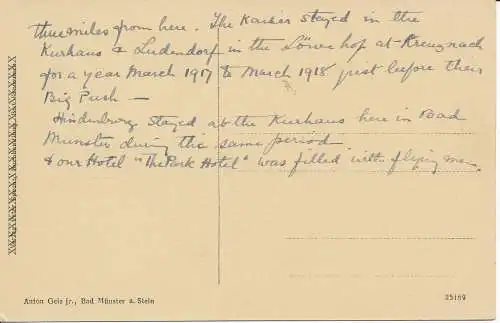 three miles from here. The Kaiser stayed in the
Kurhaus & Ludendorf in the Löwe hof at Kreuznach
for a year March 1917 to March 1918 just before their
Big Push —
Hindenburg stayed at the Kurhaus here in Bad
Munster during the same period
& our Hotel "The Park Hotel" was filled with flying men.
XXXXXXXXXXXXXXXXXXXXXXXX
Anton Geis jr., Bad Münster a. Stein
25169